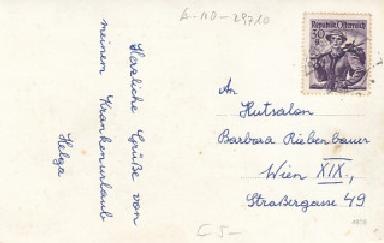 A-ND-28710
Herzliche Grüße von
meinem Krankenurlaub
Helga
Republik Österreich
30
g
An
Hutsalon
Barbara Riebenbauer
Wien XIX,
Straßergasse 49
C 5-